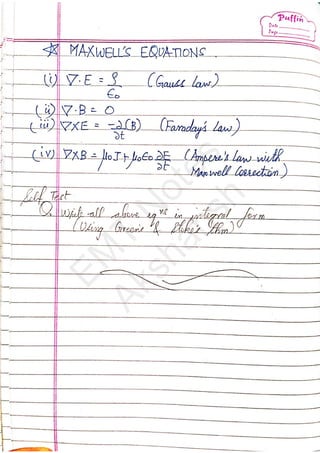 Puffin
Date
Page
☆ MAXWELL'S EQUATIONS.
(i) ∇·E = ρ/ε₀ (Gauss law)
(ii) ∇·B = 0
(iii) ∇×E = -∂(B)/∂t (Faraday's Law)
(iv) ∇×B = μ₀J + μ₀ε₀ ∂E/∂t (Ampere's Law with
Maxwell Correction)
Self Test
Q. Write all above eqⁿˢ in integral form
(Using Greens & Stoke's thm)
EMT Notes
Akshansh